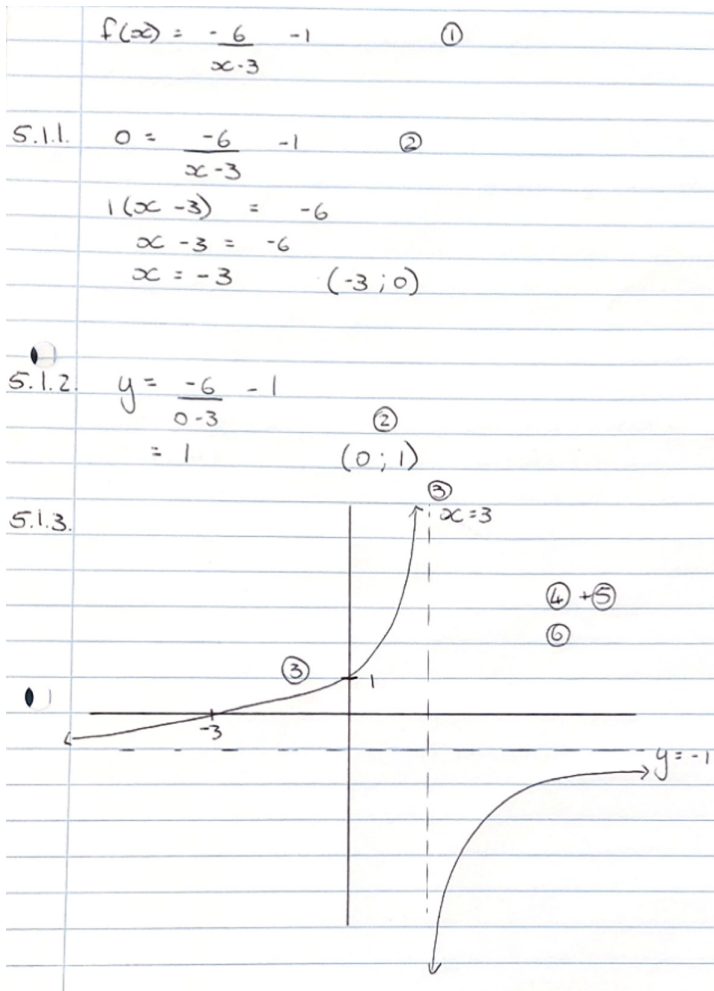 f(x) = -6/x-3 -1 ①
5.1.1. 0 = -6/x-3 -1 ②
1(x -3) = -6
x -3 = -6
x = -3 (-3 ; 0)
5.1.2. y = -6/0-3 - 1
②
= 1 (0 ; 1)
③
5.1.3. x=3
④ +⑤
⑥
③
1
-3
y = -1